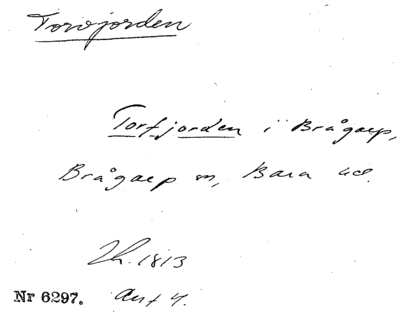 Torvjorden
Torfjorden i Brågarp,
Brågarp sn, Bara hd.
Lh. 1813
Nr 6297. Akt 4.